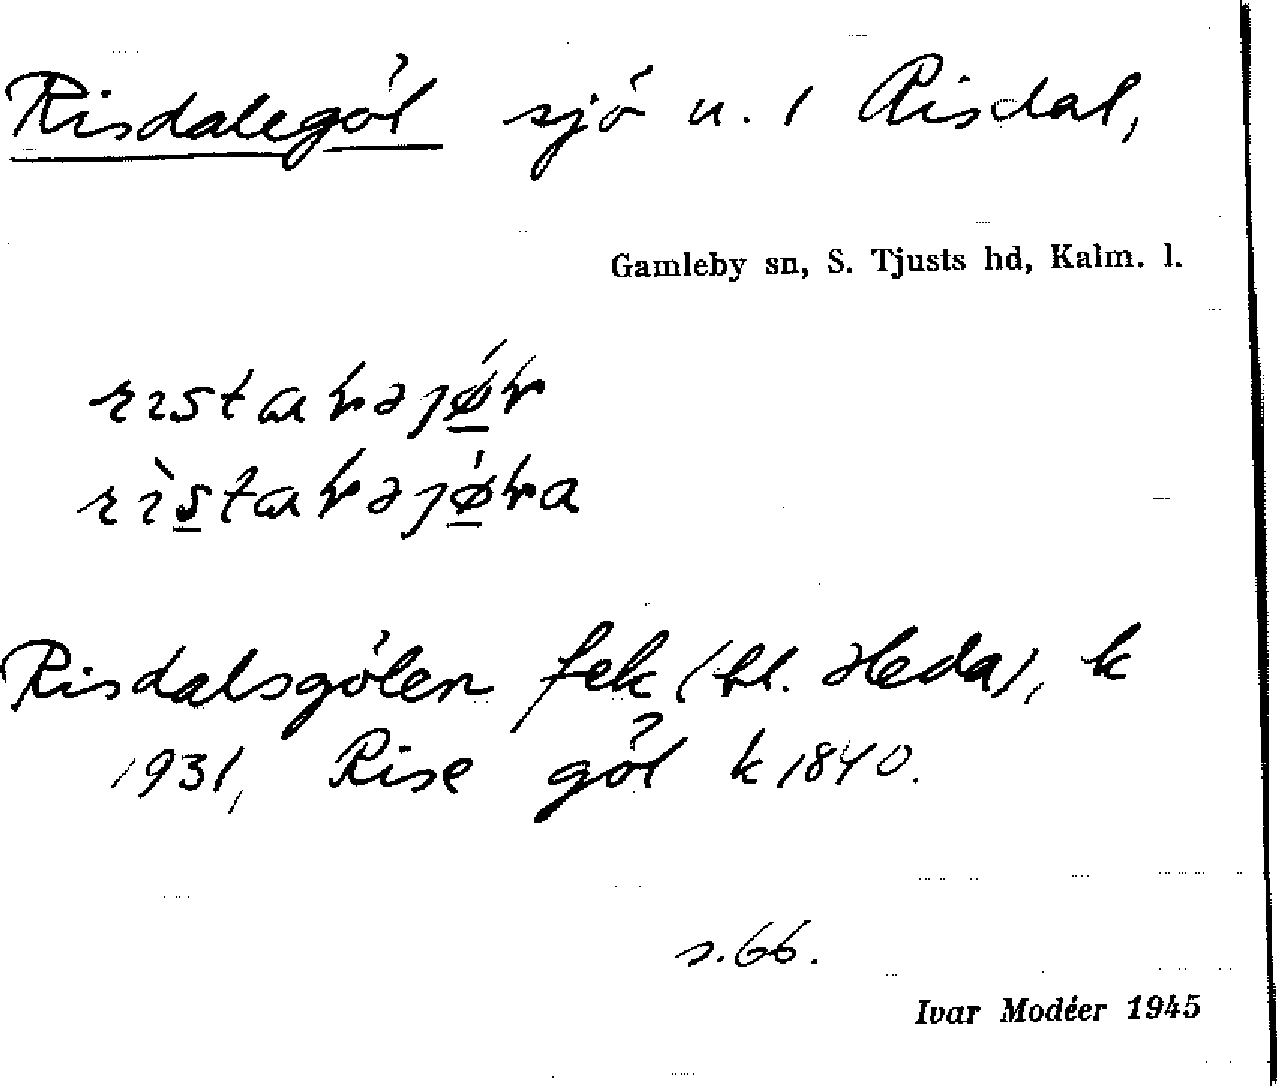 Risdalegöl sjö u. / Risdal,
Gamleby sn, S. Tjusts hd, Kalm. l.
Risdalsgölen fek (bl. Heda), k
1931, Rise göl k 1840.
s. 66.
Ivar Modéer 1945